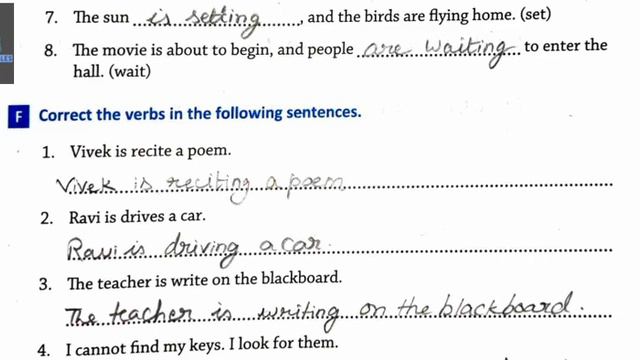 7. The sun is setting, and the birds are flying home. (set)
8. The movie is about to begin, and people are waiting to enter the
hall. (wait)
LES
F Correct the verbs in the following sentences.
1. Vivek is recite a poem.
Vivek is reciting a poem
2. Ravi is drives a car.
Ravi is driving a car.
3. The teacher is write on the blackboard.
The teacher is writing on the blackboard.
4. I cannot find my keys. I look for them.